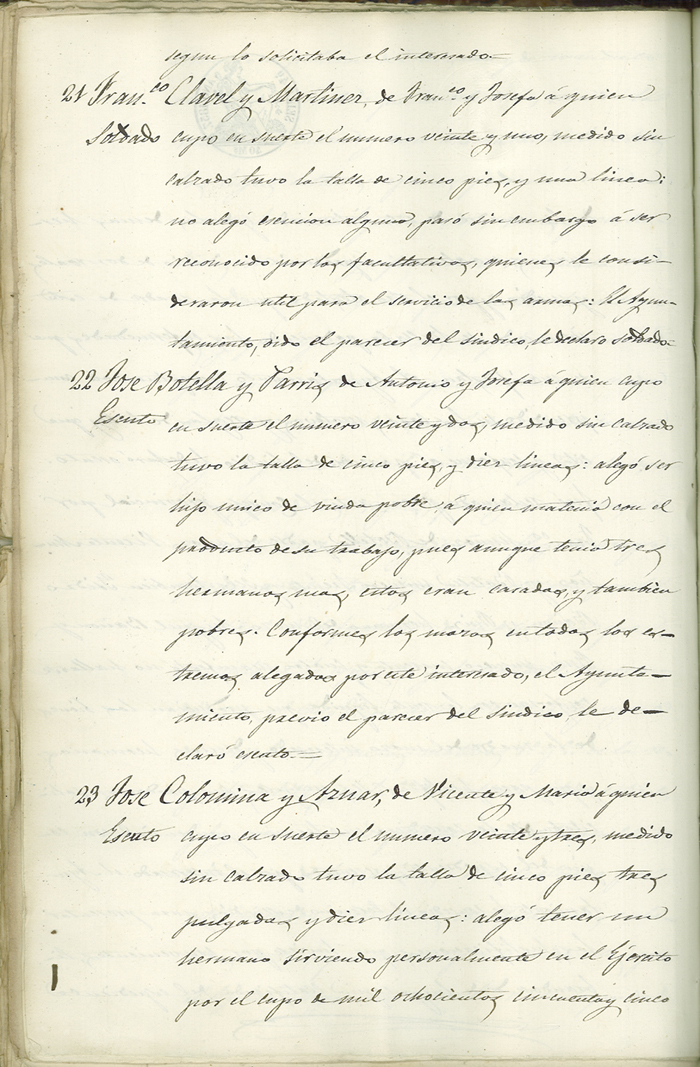 segun lo solicitaba el interesado.—
21 Fran.co Clavel y Martinez, de Fran.co y Josefa á quien
Soldado cupo en suerte el numero veinte y uno, medido sin
calzado tuvo la talla de cinco pies, y una linea:
no alegó esencion alguna, pasó sin embargo á ser
reconocido por los facultativos, quienes le consi-
deraron util para el servicio de las armas: El Ayun-
tamiento, oido el parecer del sindico, le declaró soldado.
22 Jose Botella y Parris de Antonio y Josefa á quien cupo
Esento en suerte el numero veinte y dos, medido sin calzado
tuvo la talla de cinco pies, y diez lineas: alegó ser
hijo unico de viuda pobre á quien mantenia con el
producto de su trabajo, pues aunque tenia tres
hermanos mas, estos eran casados, y tambien
pobres. Conformes los mozos en todos los es-
tremos alegados por este interesado, el Ayunta-
miento, previo el parecer del sindico, le de-
claró esento.—
23 Jose Colomina y Aznar, de Vicente y Maria á quien
Esento cupo en suerte el numero veinte y tres, medido
sin calzado tuvo la talla de cinco pies, tres
pulgadas, y diez lineas: alegó tener un
hermano sirviendo personalmente en el Ejercito
por el cupo de mil ochocientos cincuenta y cinco